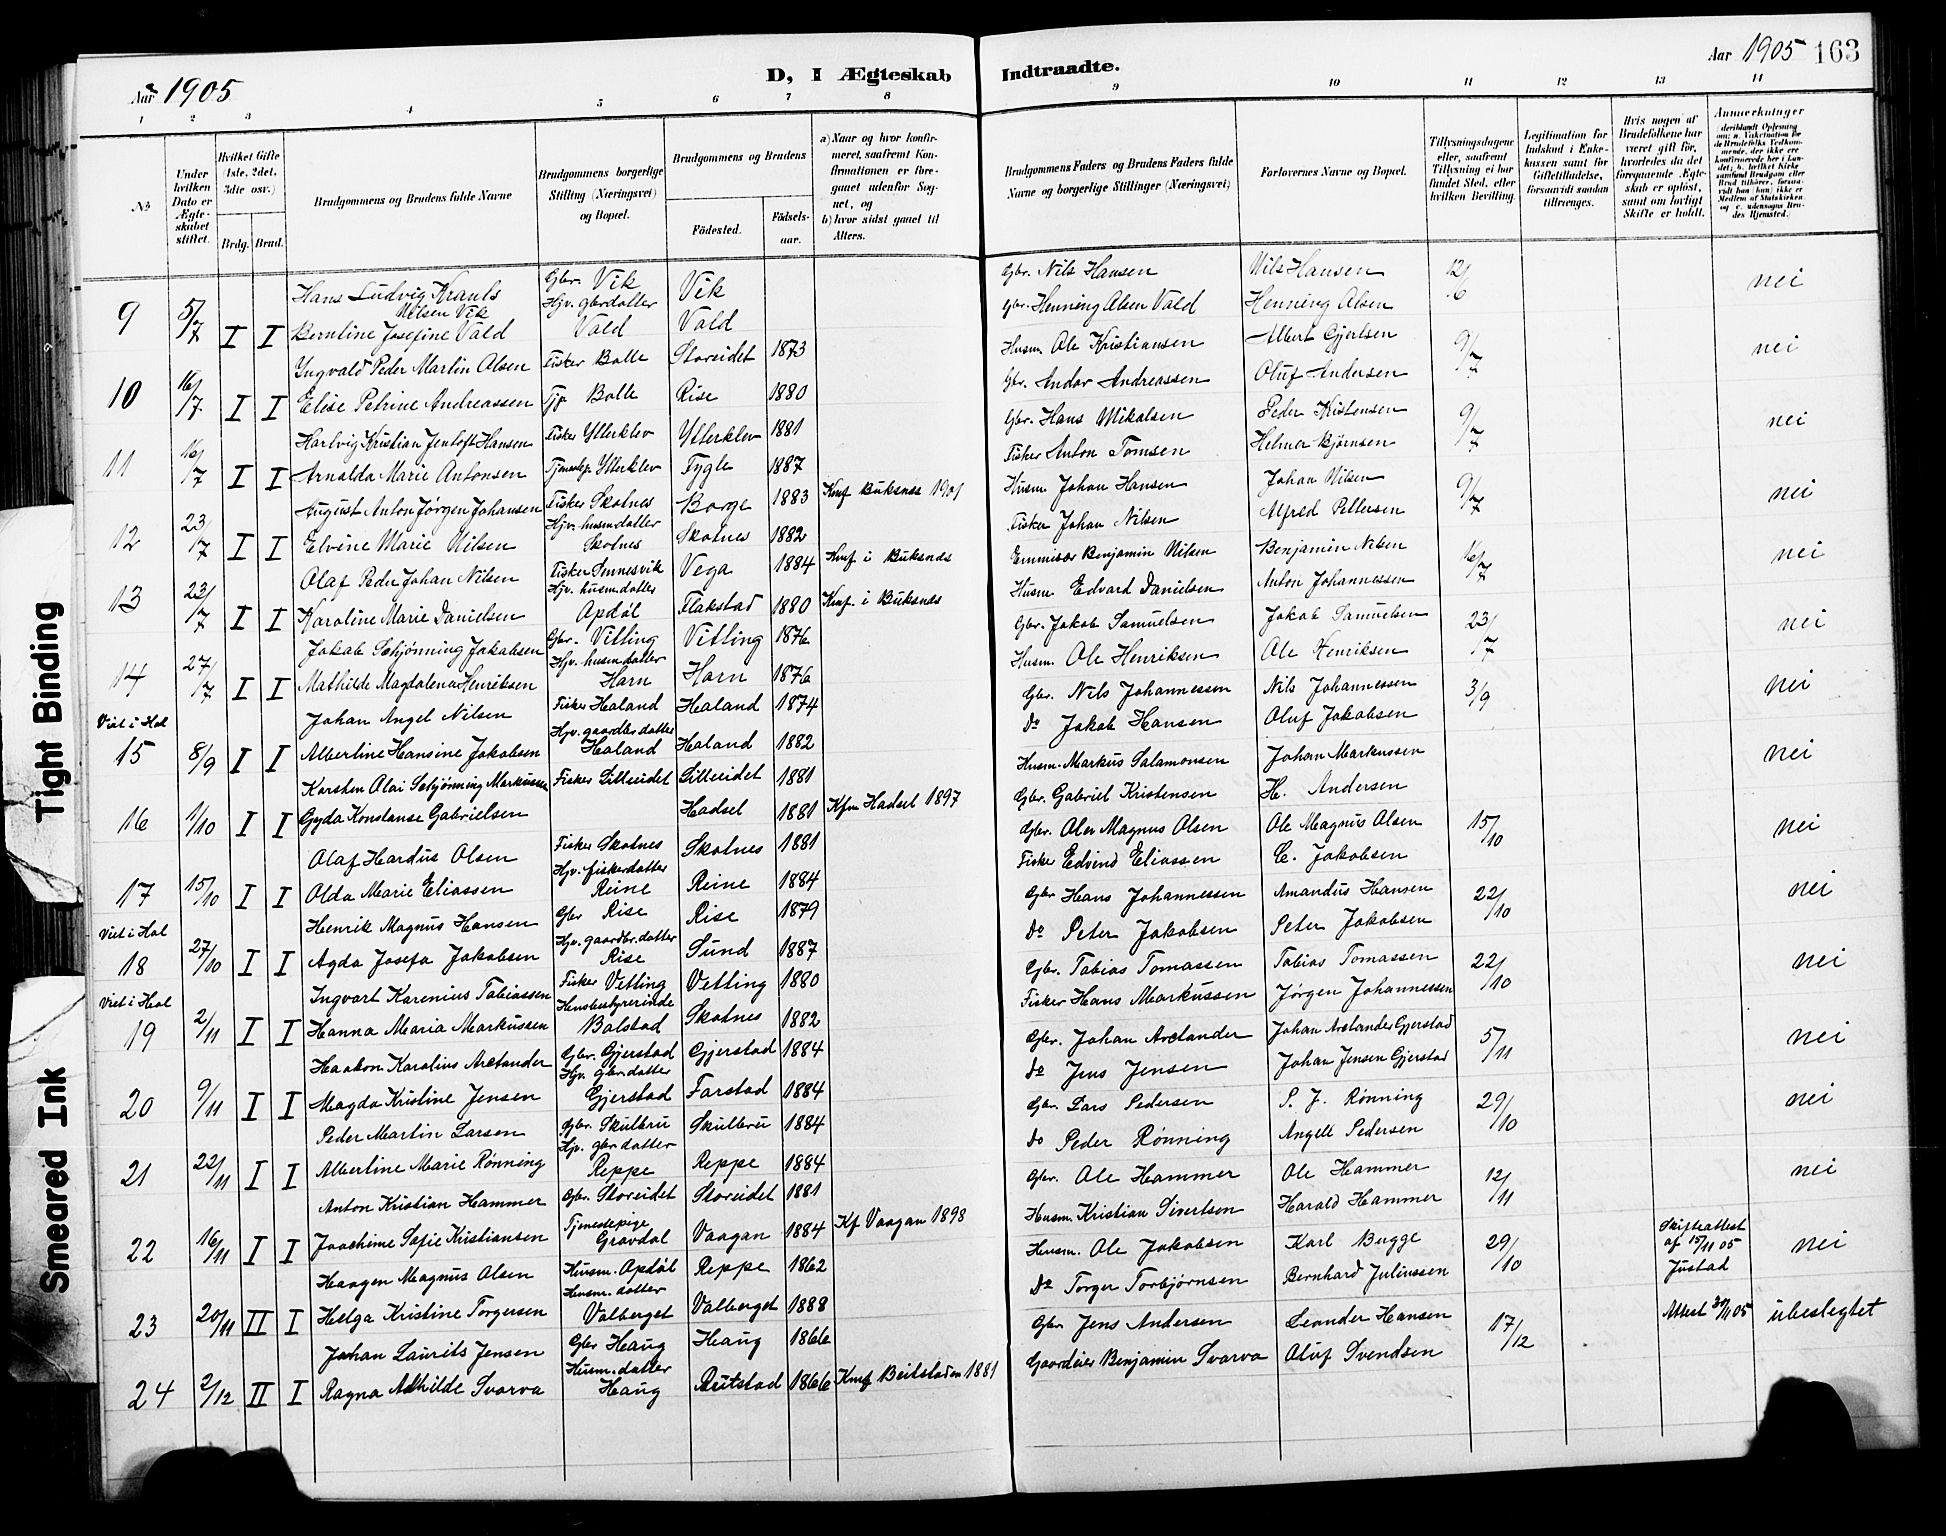 Aar 1905
D, I Ægteskab
Indtraadte.
Aar 1905 163
1 2 3 4 5 6 7 8 9 10 11 12 13 14
№
Under hvilken Dato er Ægteskabet stiftet.
Hvilket Gifte (1ste, 2det, 3die osv.)
Brdg. Brud.
Brudgommens og Brudens fulde Navne
Brudgommens borgerlige Stilling (Næringsvei) og Bopæl.
Brudgommens og Brudens
Födested. Födsels-aar.
a) Naar og hvor konfirmeret, saafremt Konfirmationen er foregaaet udenfor Sognet, og
b) hvor sidst gaaet til Alters.
Brudgommens Faders og Brudens Faders fulde Navne og borgerlige Stillinger (Næringsvei)
Forlovernes Navne og Bopæl.
Tillysningsdagene eller, saafremt Tillysning ei har fundet Sted, efter hvilken Bevilling.
Legitimation for Indskud i Enkekassen samt for Giftetilladelse, forsaavidt saadan tiltrænges.
Hvis nogen af Brudefolkene har været gift før, hvorledes da det foregaaende Ægteskab er oplöst, samt om lovligt Skifte er holdt.
Anmerkninger
Hans Ludvig Krants Nilsen Vik Gbr. Vik Vik Gbr. Nils Hansen Nils Hansen 12/6 nei
9 5/7 I I Berntine Josefine Vald Hjv. gbrdatter Vald Vald Gbr. Henning Olsen Vald Henning Olsen
Yngvald Peder Martin Olsen Fisker Bolle Storeidet 1873 Husm. Ole Kristiansen Albert Gjertsen 9/7 nei
10 16/7 I I Elise Petrine Andreassen Tjp Bolle Rise 1880 Gbr. Andor Andreassen Oluf Andersen
Hartvig Kristian Jentoft Hansen Fisker Ytterklev Ytterklev 1881 Gbr. Hans Mikalsen Peder Kristensen 9/7 nei
11 16/7 I I Arnolda Marie Antonsen Ytterklev Fygle 1887 Fisker Anton Tomsen Helmer Bjørnsen
August Anton Jørgen Johansen Fisker Skotnes Borge 1883 Konf Buksnes 1901 Husm Johan Hansen Johan Nilsen 9/7 nei
12 23/7 I I Elvine Marie Nilsen Hjv. husmdatter Skotnes Skotnes 1882 Fisker Johan Nilsen Alfred Pettersen
Olaf Peder Johan Nilsen Fisker Sennesvik Vega 1884 Konf i Buksnes Emmisær Benjamin Nilsen Benjamin Nilsen 16/7 nei
13 23/7 I I Karoline Marie Danielsen Hjv. husmdatter Apdøl Flakstad 1880 Konf. i Buksnes Husm Edvard Danielsen Anton Johannessen
Jakob Schjønning Jakobsen Gbr. Vetting Vetting 1876 Gbr. Jakob Samuelsen Jakob Samuelsen 23/7 nei
14 27/7 I I Mathilde Magdalena Henriksen Hjv. husmdatter Horn Horn 1876 Husm. Ole Henriksen Ole Henriksen
Johan Angel Nilsen Fisker Haland Haland 1874 Gbr. Nils Johannessen Nils Johannessen 3/9 nei
Viet i Hol 15 8/9 I I Albertine Hansine Jakobsen Hjv. gaardbr.datter Haland Haland 1882 Do Jakob Hansen Oluf Jakobsen
Karsten Olai Schjønning Markussen Fisker Lilleeidet Lilleeidet 1881 Husm. Markus Salamonsen Johan Markussen nei
16 1/10 I I Gyda Konstanse Gabrielsen Hadsel 1881 Kfm Hadsel 1897 Gbr. Gabriel Kristensen H. Andersen
Olaf Hardus Olsen Fisker Skotnes Skotnes 1881 Gbr. Oler Magnus Olsen Ole Magnus Olsen 15/10 nei
17 15/10 I I Olda Marie Eliassen Hjv. fiskerdatter Reine Reine 1884 Fisker Edvind Eliassen C. Jakobsen
Henrik Magnus Hansen Gbr Rise Rise 1879 Gbr Hans Johannessen Amandus Hansen 22/10 nei
Viet i Hol 18 27/10 I I Agda Josefa Jakobsen Hjv. gaardbr.datter Rise Sund 1887 Do Peter Jakobsen Peter Jakobsen
Ingvart Karenius Tobiassen Fisker Vetting Vetting 1880 Gbr. Tobias Tomassen Tobias Tomassen 22/10 nei
Viet i Hol 19 2/11 I I Hanna Maria Markussen Husbestyrerinde Balstad Skotnes 1882 Fisker Hans Markussen Jørgen Johannessen
Haakon Karolius Arctander Gbr. Gjerstad Gjerstad 1884 Gbr. Johan Arctander Johan Arctander Gjerstad 5/11 nei
20 9/11 I I Magda Kristine Jensen Hjv. gbrdatter Gjerstad Farstad 1884 Do Jens Jensen Johan Jensen Gjerstad
Peder Martin Larsen Gbr. Skulbru Skulbru 1884 Gbr. Lars Pedersen P. J. Rønning 29/10 nei
21 22/11 I I Albertine Marie Rønning Hjv. gbrdatter Reppe Reppe 1884 Do Peder Rønning Angell Pedersen
Anton Kristian Hammer Gbr. Storeidet Storeidet 1881 Gbr. Ole Hammer Ole Hammer 12/11 nei
22 16/11 I I Joachime Sofie Kristiansen Tjenestepige Gravdal Vaagan 1884 Kf Vaagan 1898 Husm. Kristian Sivertsen Harald Hammer
Haagen Magnus Olsen Husm. Apdøl Reppe 1862 Husm. Ole Jakobsen Karl Bugge 29/10 Skifteattest af 15/11 05 Justad nei
23 20/11 II I Helga Kristine Torgersen Husm. datter Valberget Valberget 1888 Do Torger Torbjørnsen Bernhard Juliussen
Johan Laurits Jensen Gbr Haug Haug 1866 Gbr Jens Andersen Leonder Hansen 17/12 Attest 30/11 05 ubeslegtet
24 2/12 II I Ragna Adhilde Svarva Husm. datter Haug 1866 Konf Beitstaden 1881 Gaardeier Benjamin Svarva Oluf Svendsen
Tight Binding
Smeared Ink